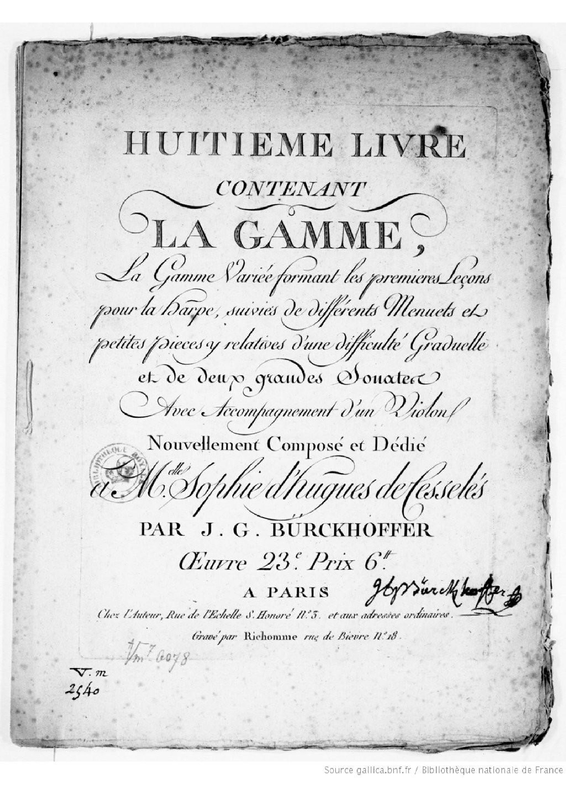 HUITIEME LIVRE
CONTENANT
LA GAMME,
La Gamme Variée formant les premieres Leçons
pour la harpe, suivies de différents Menuets et
petites pieces y relatives d'une difficulté Graduelle
et de deux grandes Sonates
Avec Accompagnement d'un Violon
Nouvellement Composé et Dédié
a M.elle Sophie d'hugues de Cesselés
PAR J. G. BÜRCKHOFFER
Œuvre 23e. Prix 6tt
A PARIS
JGBürckhoffer
Chez l'Auteur, Rue de l'Echelle St. Honoré No. 3. et aux adresses ordinaires.
Gravé par Richomme rue de Bievre No. 18.
Vm7. 6078
V. m
2540
Source gallica.bnf.fr / Bibliothèque nationale de France